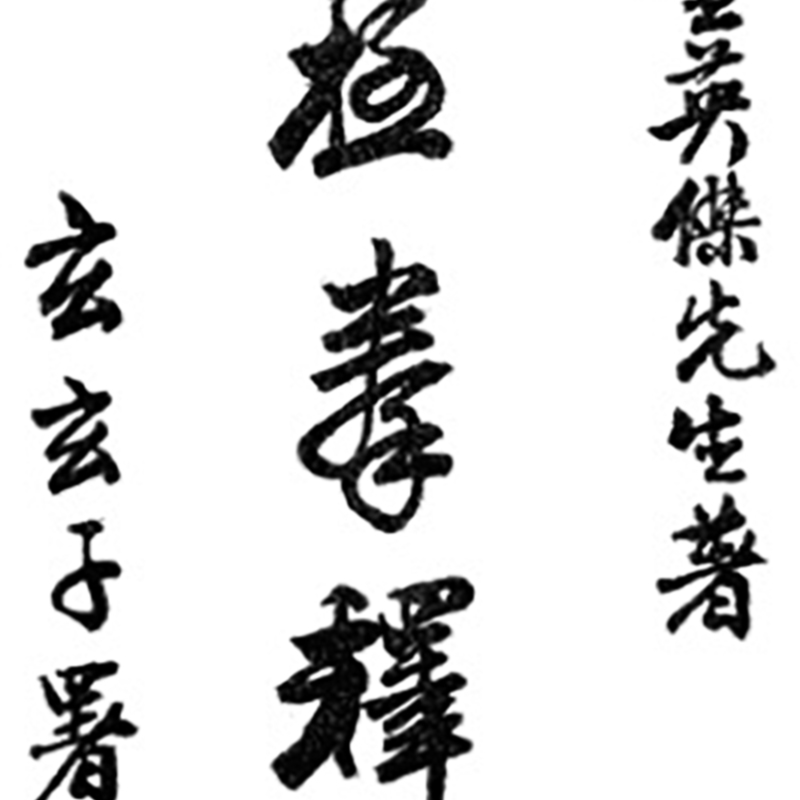 英傑先生著
極拳釋
玄玄子署